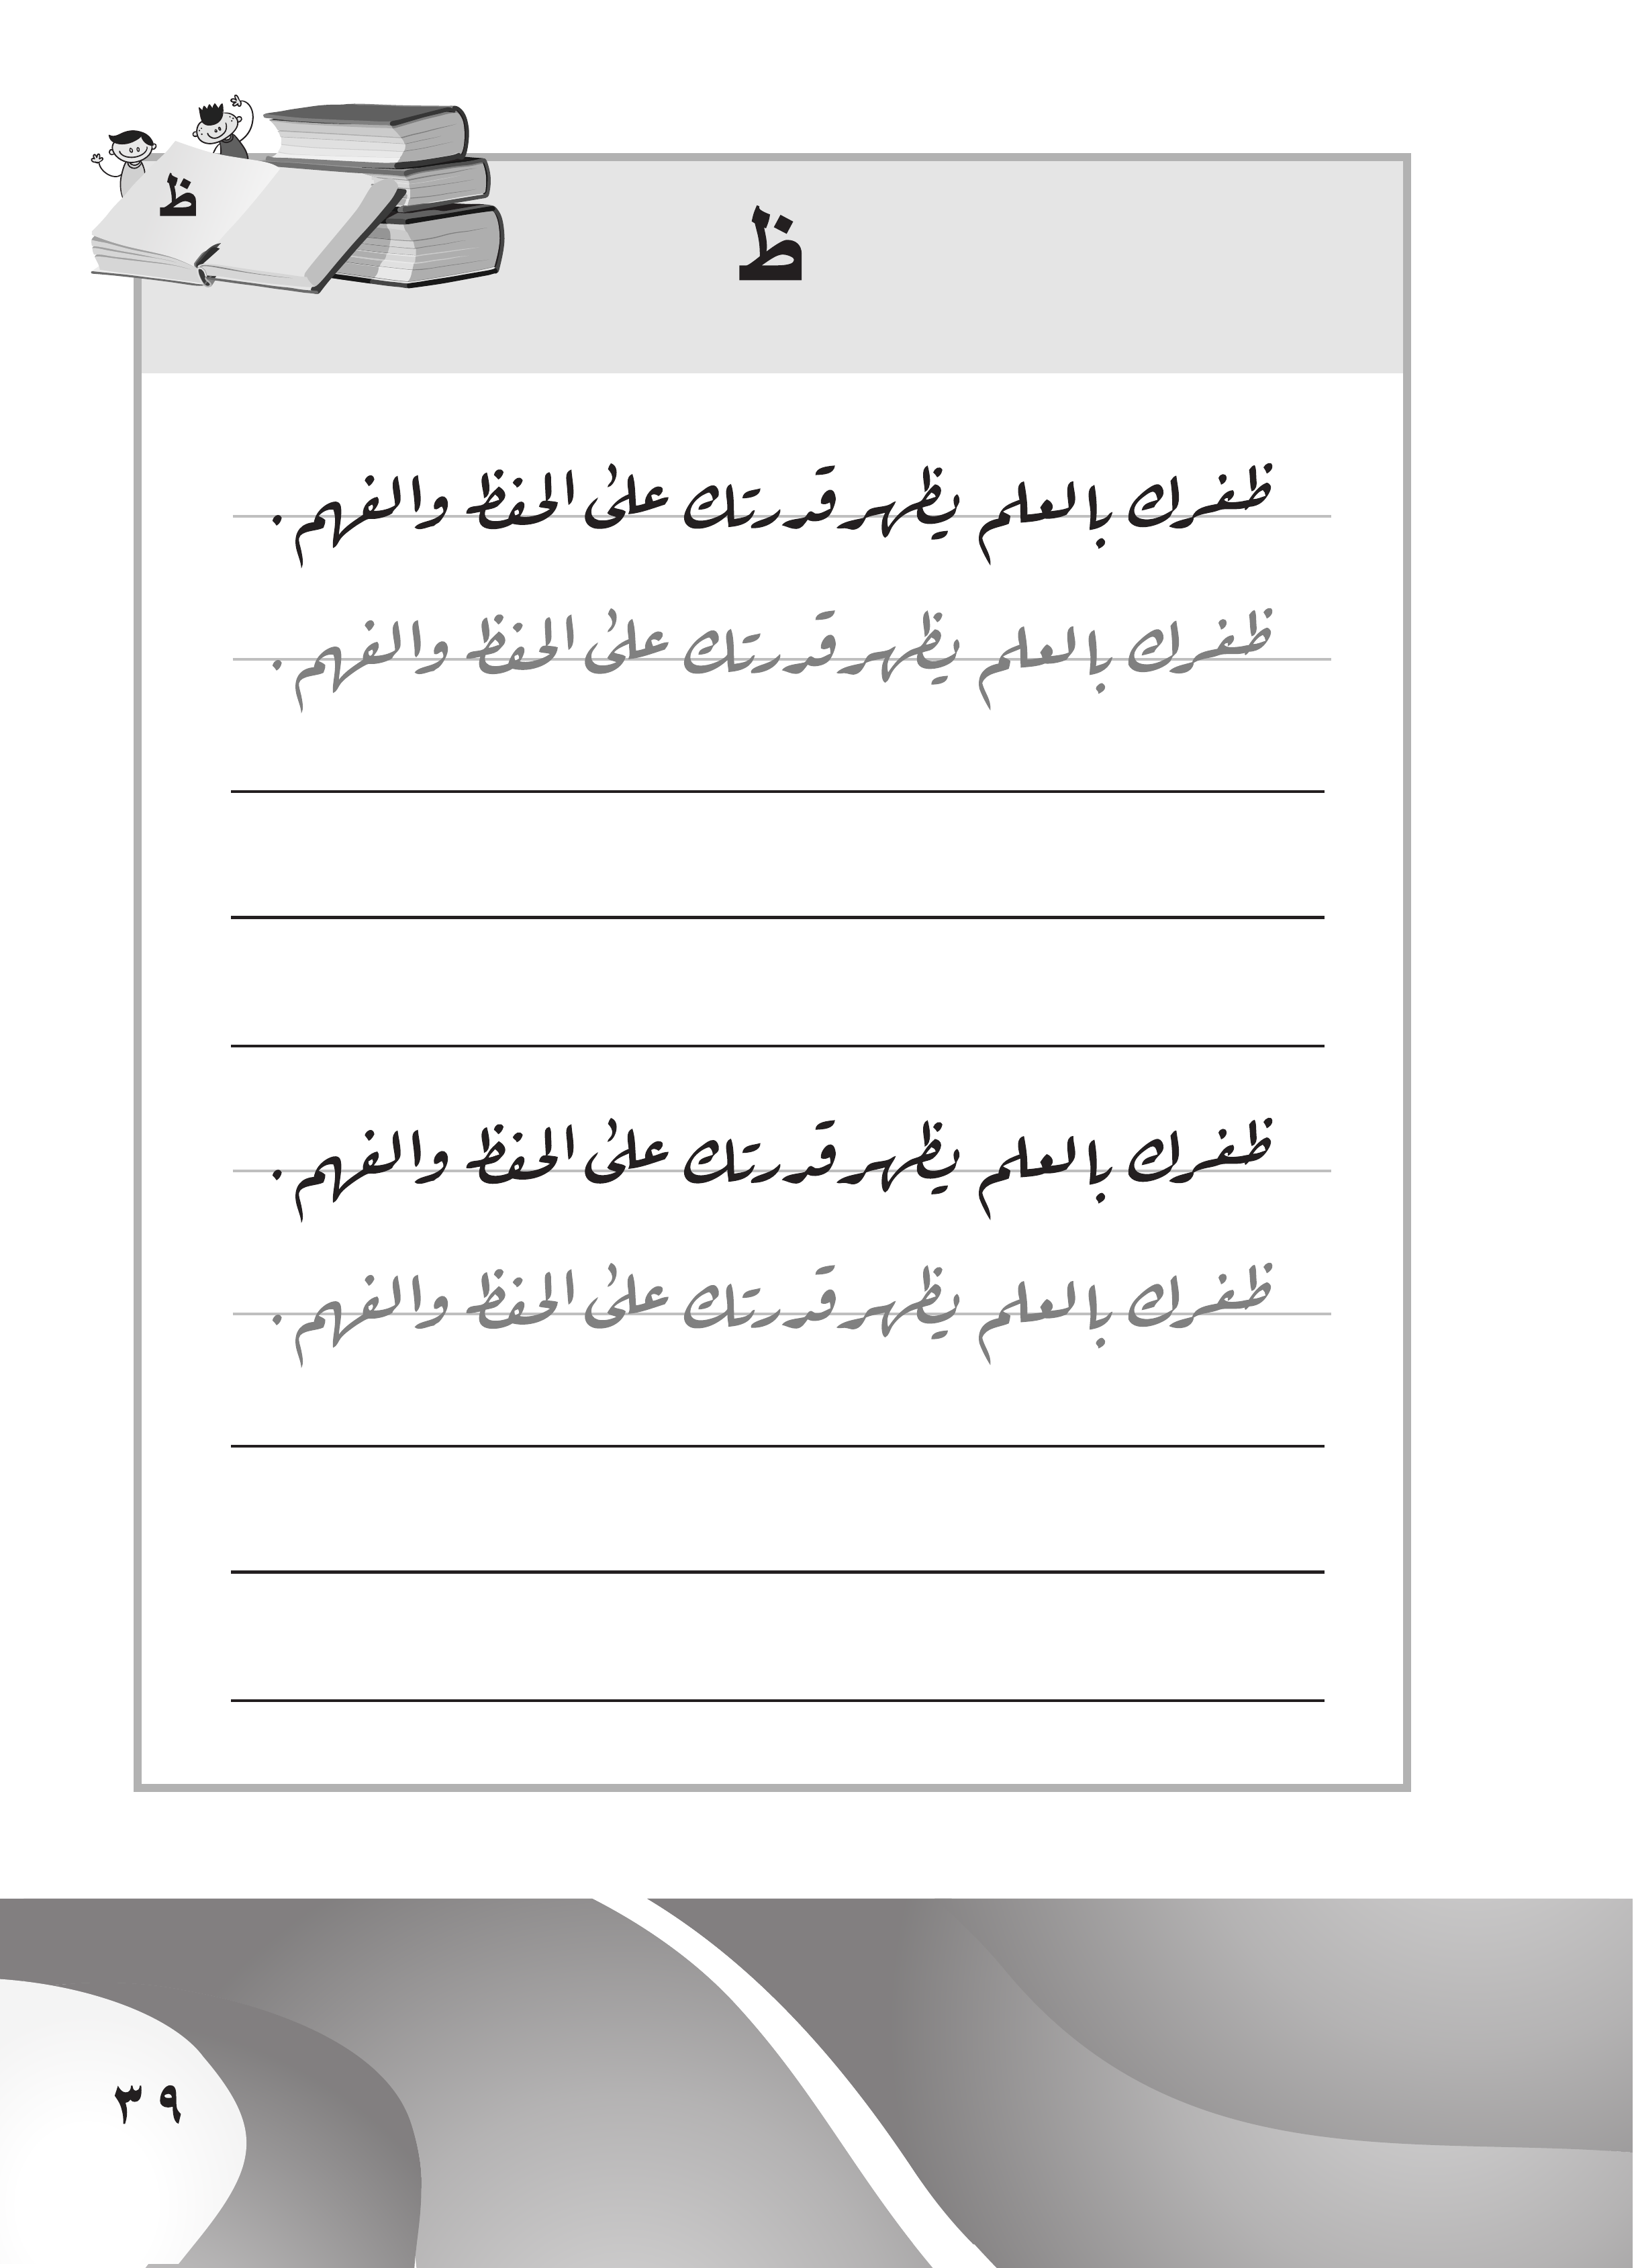 ظ
ظ
ظفرك بالعلم يظهر قدرتك على الحفظ والفهم .
ظفرك بالعلم يظهر قدرتك على الحفظ والفهم .
ظفرك بالعلم يظهر قدرتك على الحفظ والفهم .
ظفرك بالعلم يظهر قدرتك على الحفظ والفهم .
٣٩